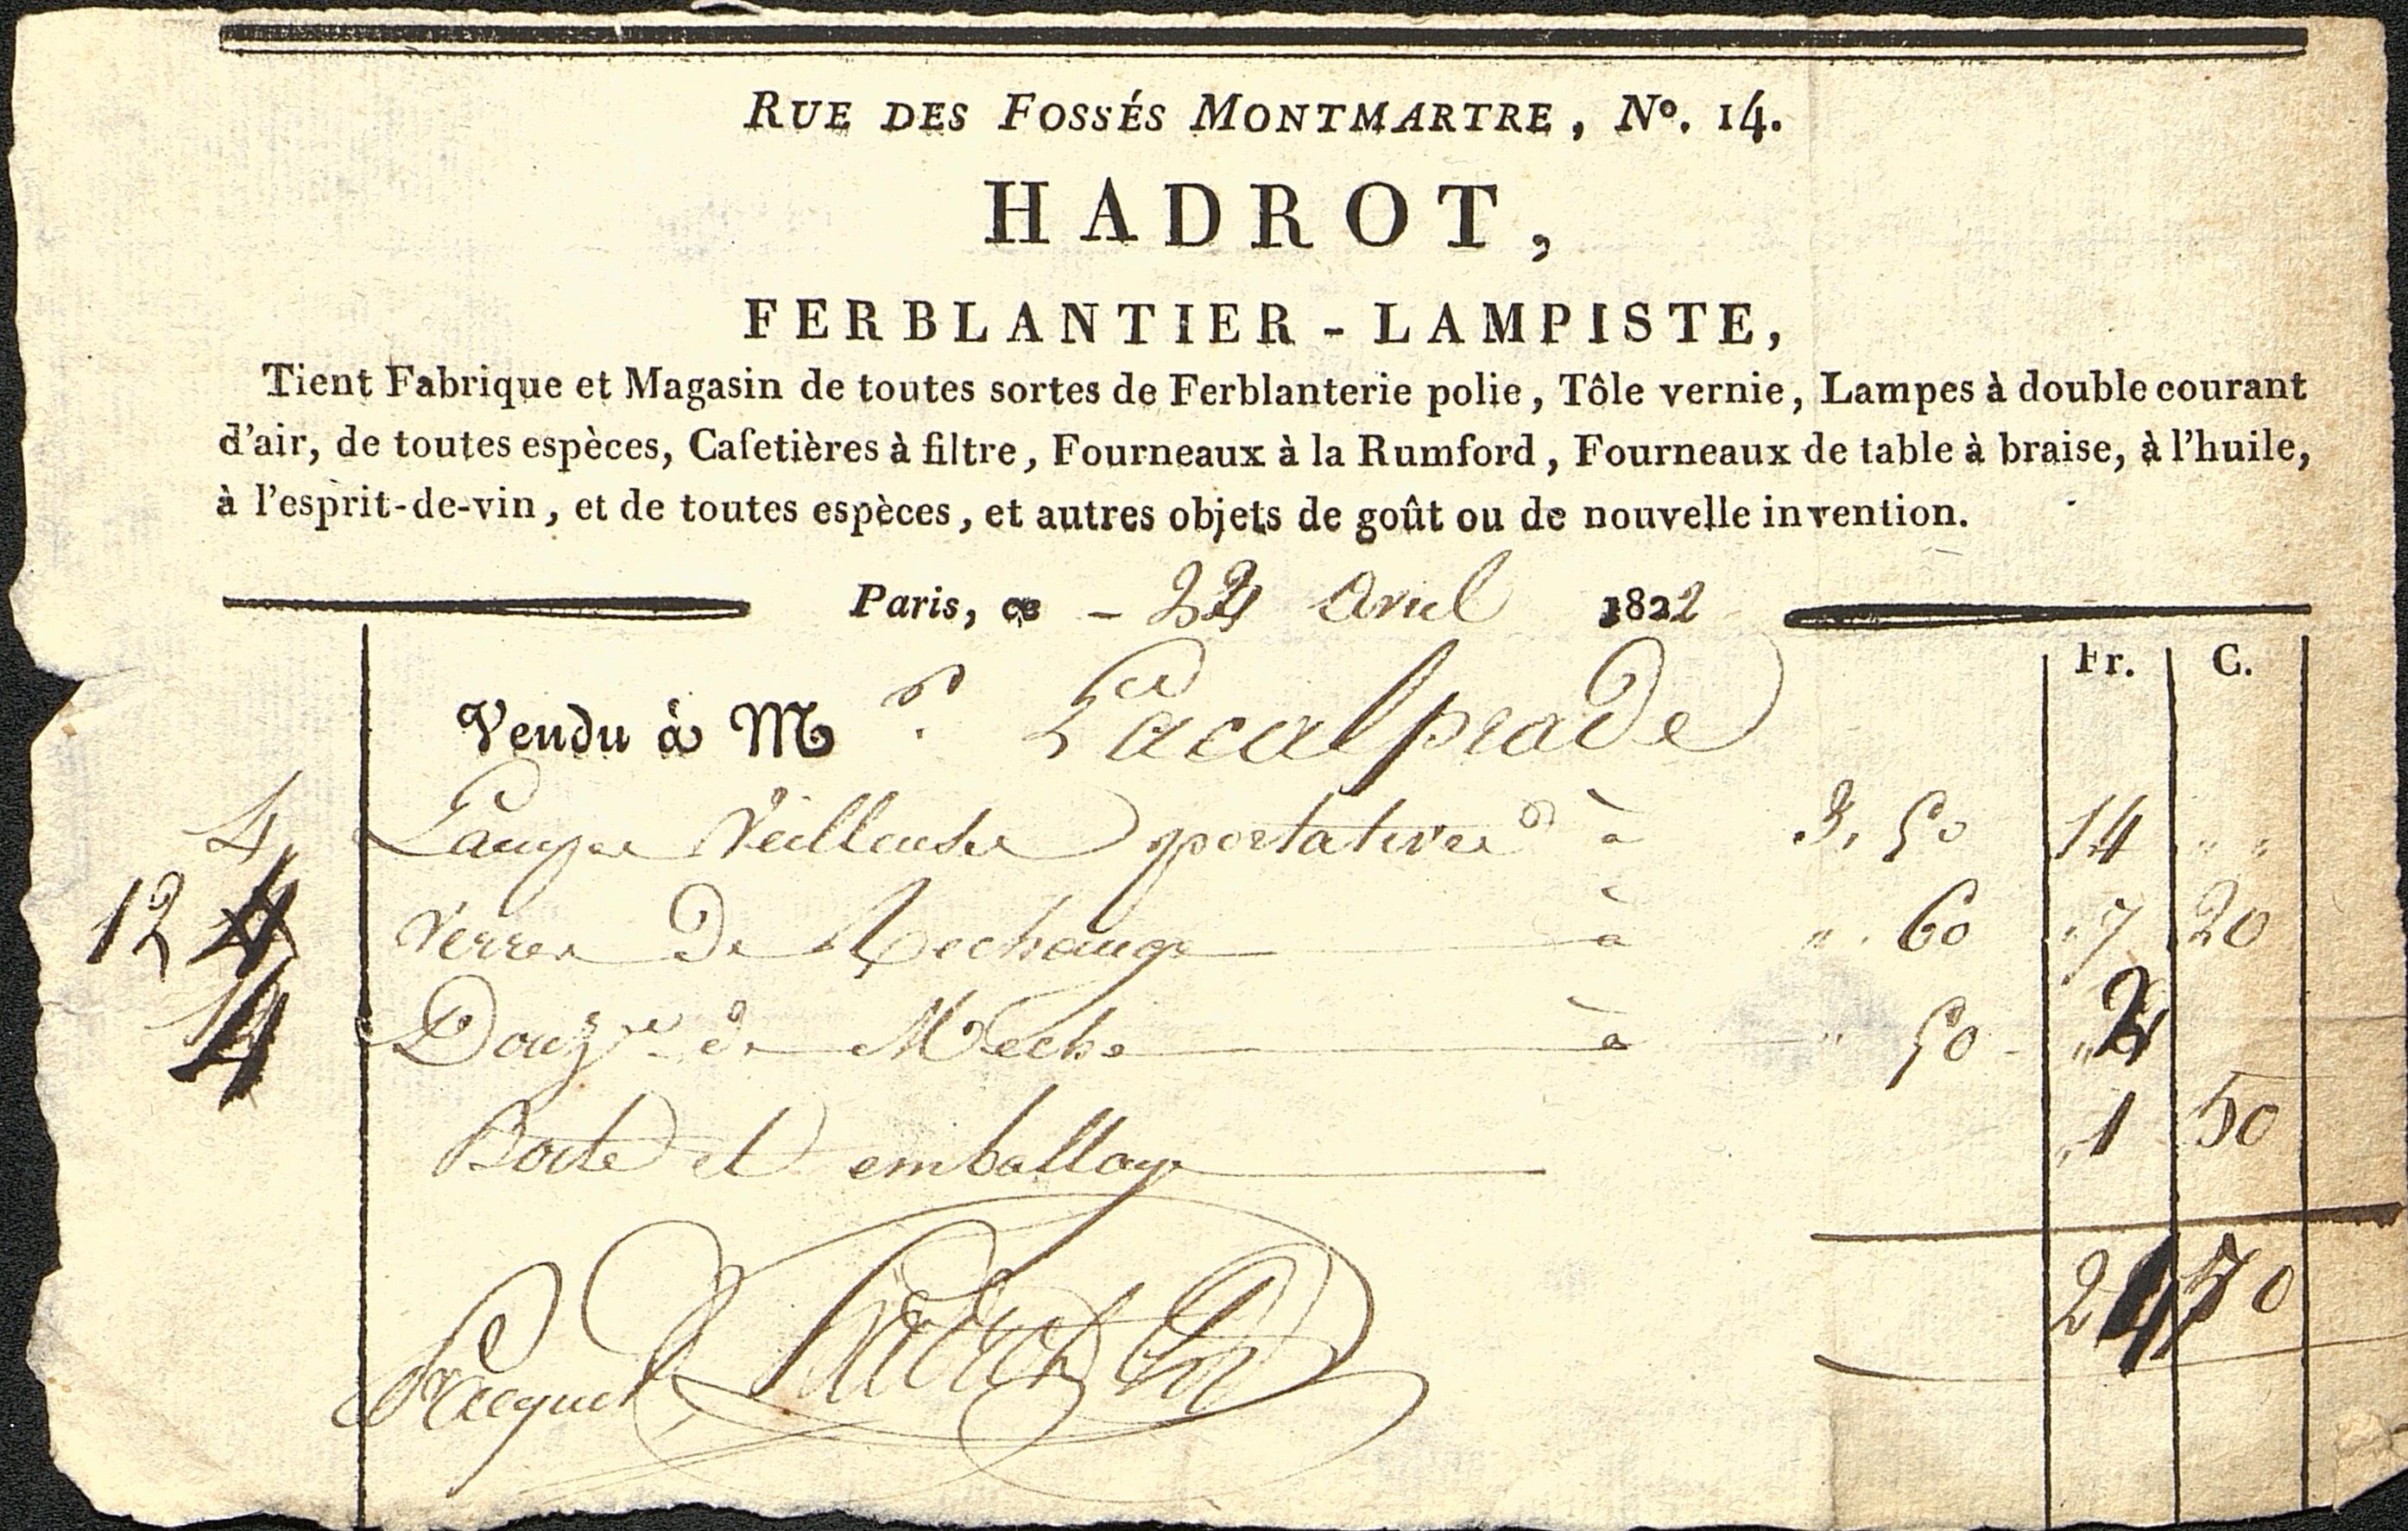 RUE DES FOSSÉS MONTMARTRE, Nº. 14.
HADROT,
FERBLANTIER-LAMPISTE,
Tient Fabrique et Magasin de toutes sortes de Ferblanterie polie, Tôle vernie, Lampes à double courant
d'air, de toutes espèces, Cafetières à filtre, Fourneaux à la Rumford, Fourneaux de table à braise, à l'huile,
à l'esprit-de-vin, et de toutes espèces, et autres objets de goût ou de nouvelle invention.
Paris, ce - Avril 1822
Fr. C.
Vendu à M r. Lacalprade
4 Lampes Veilleuse portatives à 3, 50 14 " "
12 Verres De Rechange à " 60 " 7 20
4 Douzne de Meche à " 50 " 2
Boite et emballage " 1 50
24 70